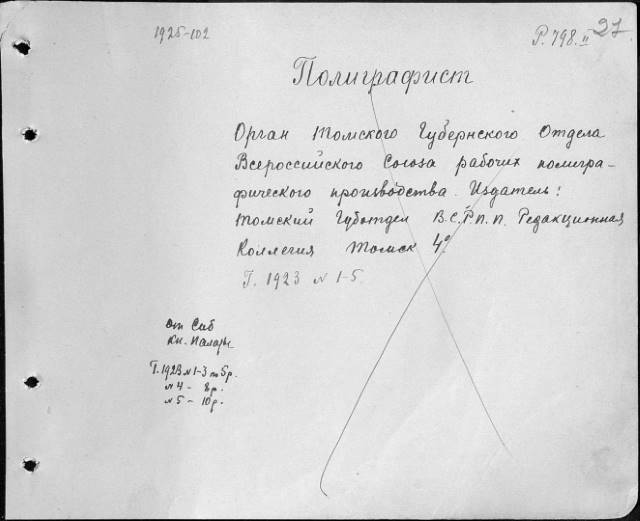 1925-102
Р. 798. II 27
Полиграфист
Орган Томского Губернского Отдела
Всероссийского Союза рабочих полигра-
фического производства. Издатель:
Томский Губотдел В.С.Р.П.П. Редакционная
Коллегия Томск 4°.
Г. 1923 N 1-5.
от Сиб
Кн. Палаты
Г. 1923 N 1-3 по 5р.
N 4 - 8р.
N 5 - 10р.